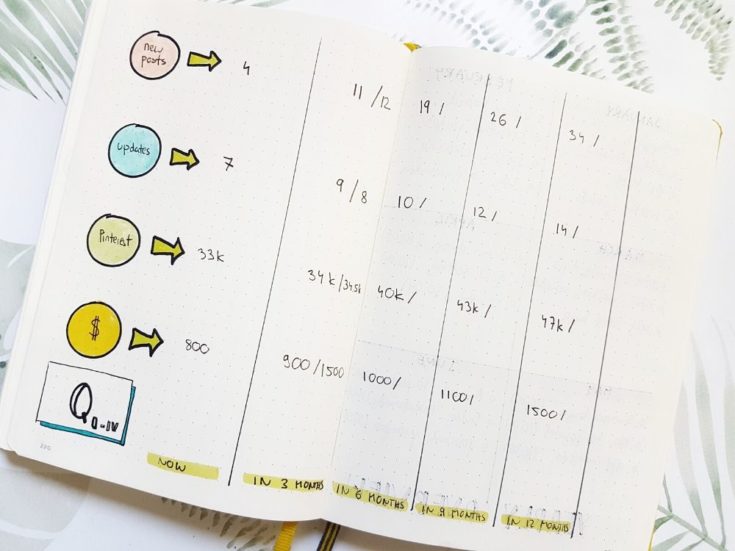 new
posts
4
11/12
19/
26/
34/
updates
7
9/8
10/
12/
14/
Pinterest
33k
34k/34.5k
40k/
43k/
47k/
$
800
900/1500
1000/
1100/
1500/
Q I-IV
NOW
IN 3 MONTHS
IN 6 MONTHS
IN 9 MONTHS
IN 12 MONTHS